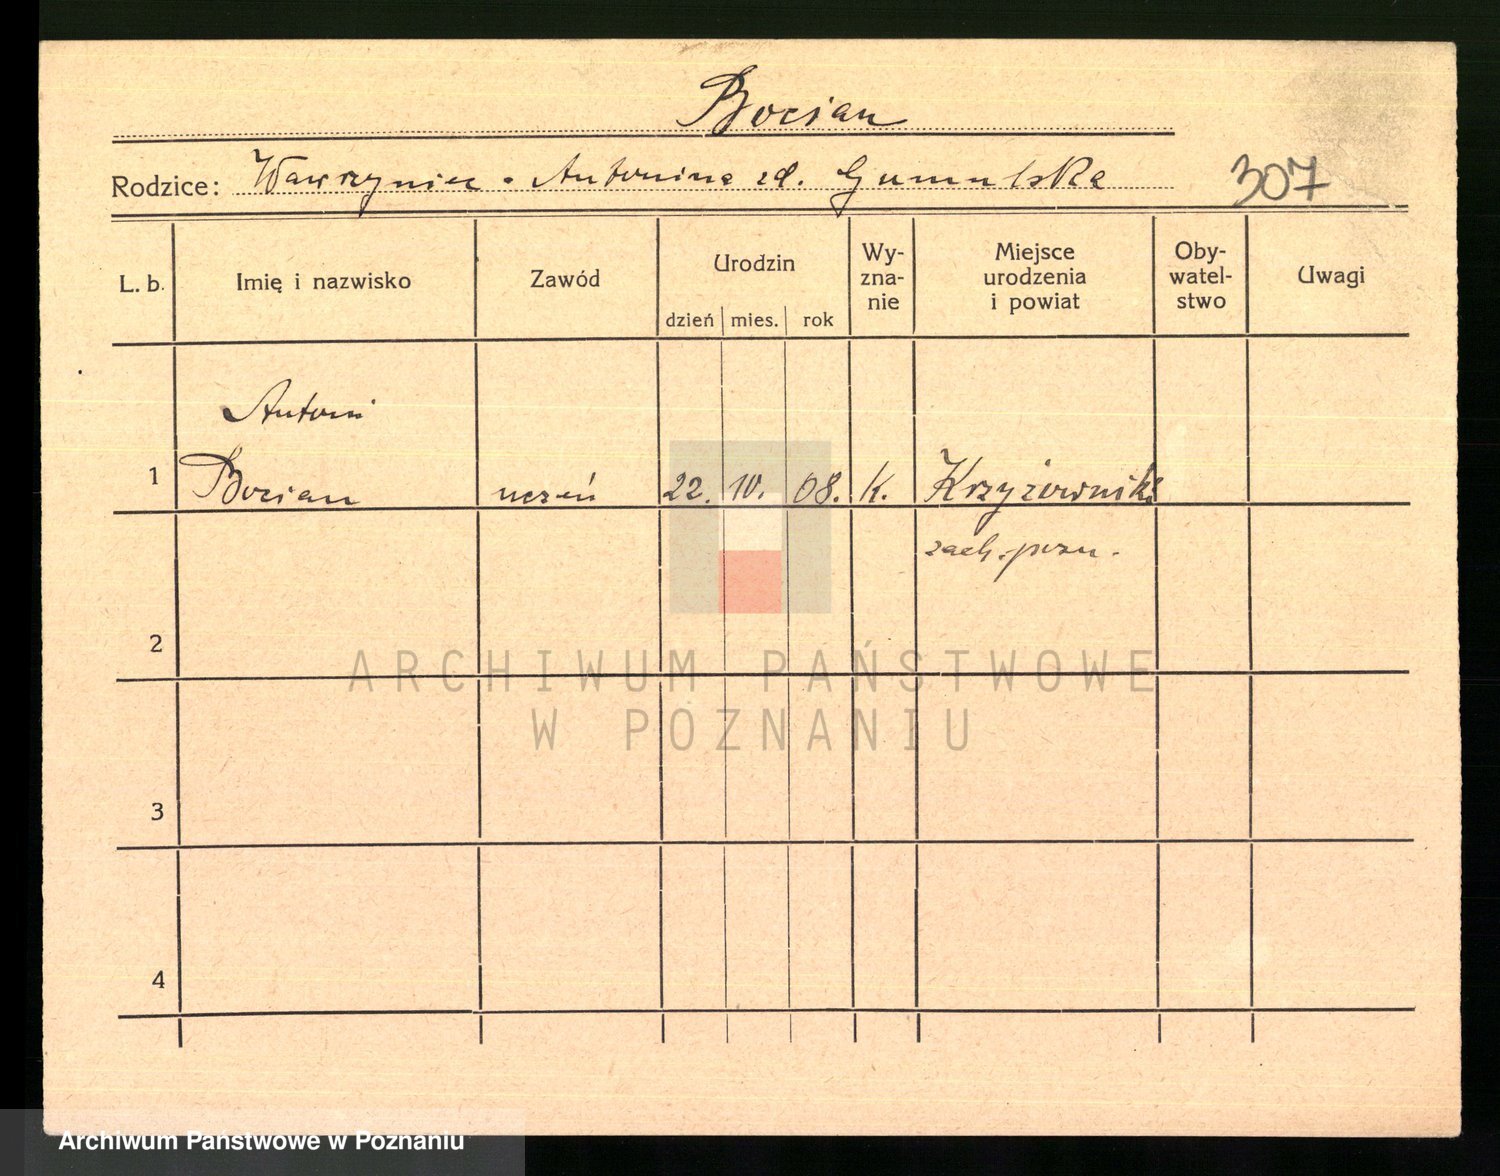 Bocian
Rodzice: Wawrzyniec - Antonina zd. Gumulska
307
L. b.
Imię i nazwisko
Zawód
Urodzin
dzień mies. rok
Wy-
zna-
nie
Miejsce
urodzenia
i powiat
Oby-
watel-
stwo
Uwagi
Antoni
1 Bocian uczeń 22. 10. 08. K. Krzyżowniki
zach. pozn.
2
ARCHIWUM PAŃSTWOWE
W POZNANIU
3
4
Archiwum Państwowe w Poznaniu